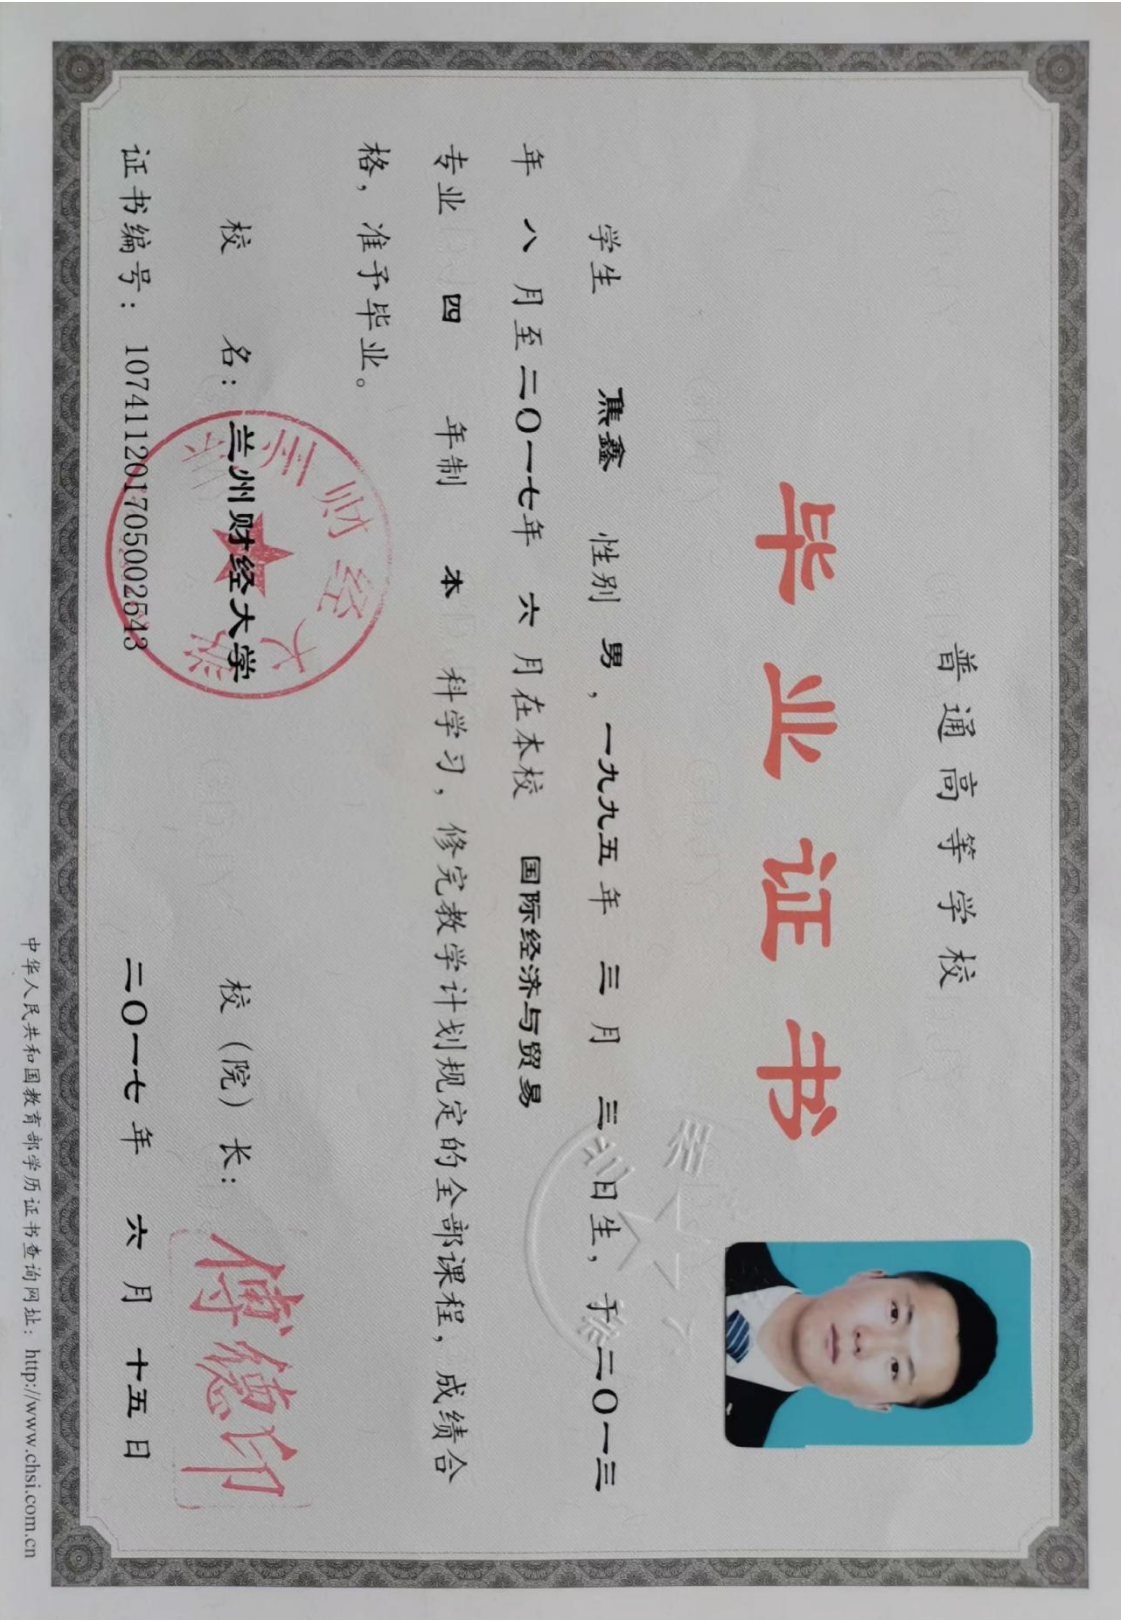 普通高等学校
毕业证书
学生 焦鑫 性别 男，一九九五年 三 月 三 日生，于二〇一三
年 八 月至二〇一七年 六 月在本校 国际经济与贸易
专业 四 年制 本 科学习，修完教学计划规定的全部课程，成绩合
格，准予毕业。
校 名：兰州财经大学 校（院）长：
傅德印
证书编号：107411201705002543 二〇一七年 六 月 十五 日
中华人民共和国教育部学历证书查询网址：http://www.chsi.com.cn
兰州财经大学